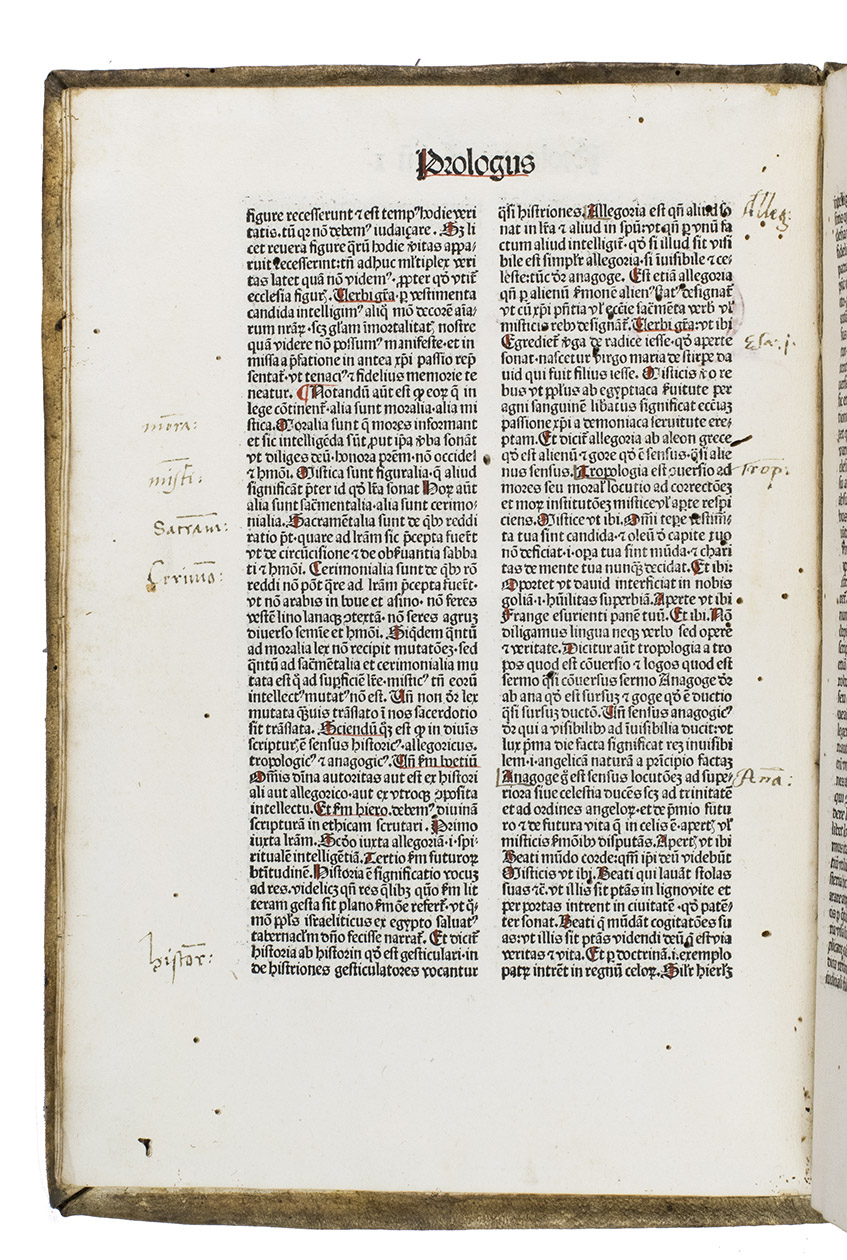 Prologus
figure recesserunt ⁊ est tempꝰ hodie veri
tatis. tū qꝫ nō debemꝰ iudaicare. Sꝫ li
cet revera figure qr̄ū hodie v̄itas appa⸗
ruit recesserint: tn̄ adhuc ml̓tiplex veri
tas latet quā nō videmꝰ. ꝓpter qd̓
ecclesia Uerbi gr̄a. ꝑ vestimenta
candida intelligimꝰ aliqͣ mō decorē aīa⸗
rum nr̄aꝝ. scꝫ gl̓am īmortalitatꝭ nostre
quā videre nō possumꝰ manifeste. et in
missa a p̄fatione in antea xp̄i passio rep̄
sentat̃. vt tenaciꝰ ⁊ fidelius memorie te
neatur. ¶ Notandū aūt est ꝙ eoꝝ q̄ in
lege cōtinent̃. alia sunt moralia. alia mi
stica. Moralia sunt q̄ mores informant
et sic intelligēda sūt, put ip̄a v̄ba sonāt
vt diliges deū. honora p̄rem. nō occides
⁊ hmōi. Mistica sunt figuralia. q̄ aliud
significāt p̄ter id qd̓ lr̄a sonat Hoꝝ aūt
alia sunt sac̄mētalia. alia sunt cerimo⸗
nialia. Sacramētalia sunt de qͥbꝰ reddi
ratio p̄t. quare ad lr̄am sic p̄cepta fuerūt
vt de circūcisione ⁊ de obẜuantia sabba
ti ⁊ hmōi. Cerimonialia sunt de qͥbꝰ rō
reddi nō pōt q̄re ad lr̄am p̄cepta fuerūt.
vt nō arabis in bove et asino. nō feres
vestē lino lanaqꝫ ꝯtextā. nō seres agrū
diuerso semīe et hmōi. Siqͥdem q̄ntū
ad moralia lex nō recipit mutatōeꝫ. sed
q̄ntū ad sac̄mētalia et cerimonialia mu
tata est qͣ ad suꝑficiē lr̄e. misticꝰ tn̄ eorū
intellectꝰ mutatꝰ nō est. Un̄ non dr̄ lex
mutata q̄ꝫuis trāslato ī nos sacerdotio
sit trāslata. Sciendū qͦꝫ est ꝙ in diuīs
scripturꝭ ē sensus historicꝰ. allegoricus.
tropologicꝰ ⁊ anagogicꝰ. Un̄ ẜm boetiū
Om̄is diuīa autoritas aut est ex histori
ali aut allegorico. aut ex vtroqꝫ ꝯposita
intellectu. Et ẜm hiero. debemꝰ diuinā
scripturā in ethicam scrutari. Primo
iuxta lr̄am. Scd̓o iuxta allegoriā. i. spi⸗
ritualē intelligētiā. Tertio ẜm futuroꝝ
btītudinē. Historia ē significatio vocū
ad res. videlicꝫ qn̄ res q̄libꝫ quō ẜm lit
teram gesta sit plano ẜmōe refert̃. vt q̄⸗
mō ppl̓s israeliticus ex egypto saluatꝰ
tabernacl̓m dn̄o fecisse narrat̃. Et dicit̃
historia ab historin qd̓ est gesticulari. in
de histriones gesticulatores vocantur
q̄si histriones. Allegoria est qn̄ aliud so
nat in lr̄a ⁊ aliud in spū: vt qn̄ ꝑ vnū fa
ctum aliud intelligit̃. qd̓ si illud sit visi
bile est simpl̓r allegoria. si īuisibile ⁊ ce⸗
leste: tūc dr̄ anagoge. Est etiā allegoria
qn̄ ꝑ alienū ẜmonē alienꝰ designat̃
vt cū xp̄i pn̄tia vl̓ eccl̓ie sac̄mēta verb vl̓
misticis rebꝰ designāt̃. Uerbi gr̄a: vt ibi
Egrediet̃ v̄ga de radice iesse. qd̓ aperte
sonat. nascetur virgo maria de stirpe da
uid qui fuit filius iesse. Misticis v̄o re
bus vt ppl̓us ab egyptiaca ẜuitute per
agni sanguinē libatus significat eccl̓iaꝫ
passione xp̄i a demoniaca seruitute ere⸗
ptam. Et dicit̃ allegoria ab aleon grece
qd̓ est alienū ⁊ gore qd̓ ē sensus. q̄si alie
nus sensus. Tropologia est ꝯuersio ad
mores seu moralꝭ locutio ad correctōeꝫ
et moꝝ institutōeꝫ mistice vl̓ aꝑte respi
ciens. Mistice vt ibi. Om̄i tꝑe vestim̄⸗
ta tua sint candida. ⁊ oleū d̓ capite tuo
nō deficiat. i. oꝑa tua sint mūda. ⁊ chari
tas de mente tua nunqꝫ decidat. Et ibi:
Oportet vt dauid interficiat in nobis
goliā. i. hūilitas superbiā. Aperte vt ibi
Frange esurienti panē tuū. Et ibi. Nō
diligamus lingua neqꝫ verbo sed opere
⁊ veritate. Dicitur aūt tropologia a tro
pos quod est cōuersio ⁊ logos quod est
sermo q̄si cōuersus sermo Anagoge dr̄
ab ana qd̓ est sursuꝫ ⁊ goge qd̓ ē ductio
q̄si sursuꝫ ductō. Un̄ sensus anagogicꝰ
dr̄ qui a visibilibꝰ ad īuisibilia ducit: vt
lux pͥma die facta significat reꝫ inuisibi
lem. i. angelicā naturā a prīcipio factaꝫ
Anagoge ḡ est sensus locutōeꝫ ad supe⸗
riora siue celestia ducēs scꝫ ad trinitatē
et ad ordines angeloꝝ. et de p̄mio futu
ro ⁊ de futura vita q̄ in celis ē. aꝑtꝭ vl̓
misticis ẜmōibꝰ disputās. Aꝑtꝭ vt ibi
Beati mūdo corde: qm̄ ip̄i deū videbūt
Misticis vt ibi. Beati qui lauāt stolas
suas ⁊c̄. vt illis sit ptās in ligno vite et
per portas intrent in ciuitatē. qd̓ patē⸗
ter sonat. Beati q̄ mūdāt cogitatōes su
as: vt illis sit ptās videndi deū q̄ est via
veritas ⁊ vita. Et ꝑ doctrinā. i. exemplo
patꝝ intrēt in regnū celoꝝ. Sil̓r hierl̓ꝫ
mōra:
misti:
Sacram:
Cerimo:
histor:
Alleg:
Esa. j.
Trop:
Ana: